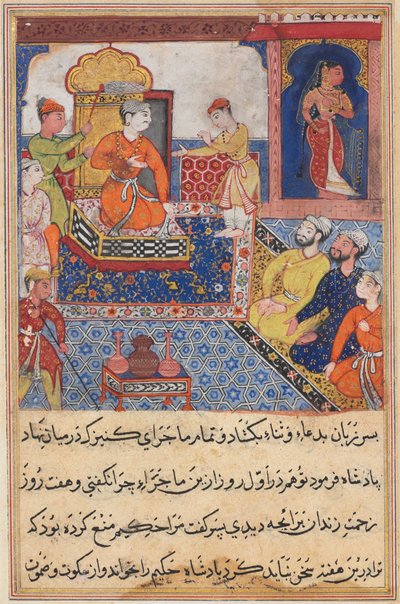 پسر زبان بدعاء و ثناء بکشاد و تمام ماجرای کنیزک درمیان نهاد
پادشاه فرمود تو هم در اول روز ازین ماجراء چرا نکفتی و هفت روز
زحمت زندان برای چه دیدی پسر کفت مرا حکیم منع کرده بود که
ترا درین هفته سخن نباید کرد پادشاه حکیم را بخواند و از سکوت و صموت